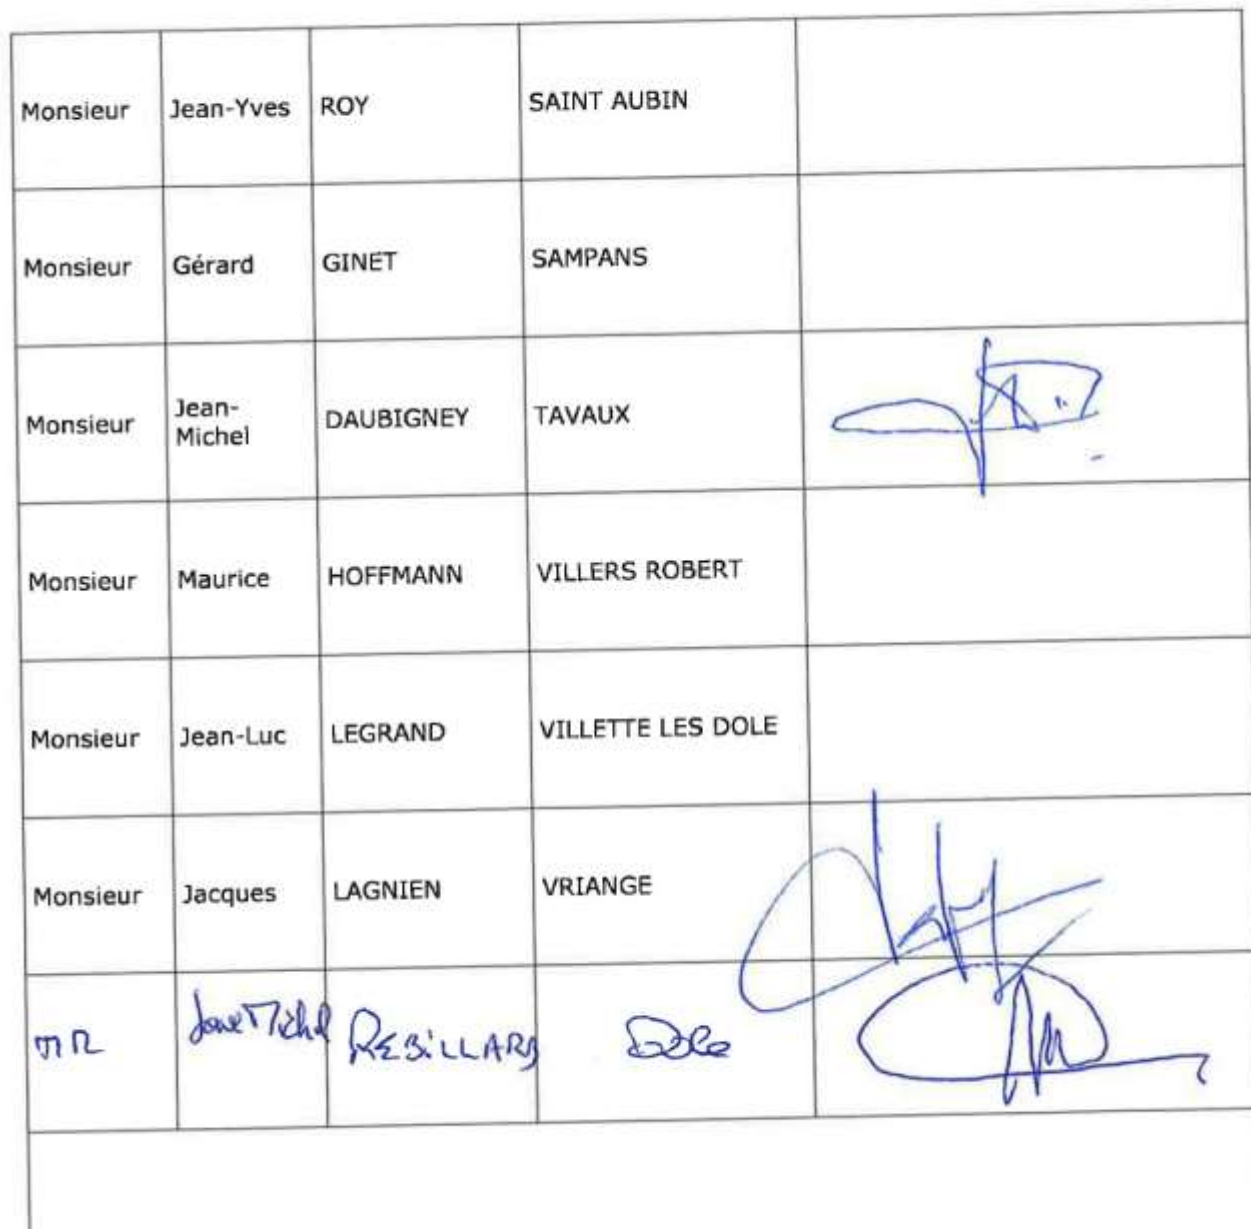 Monsieur Jean-Yves ROY SAINT AUBIN
Monsieur Gérard GINET SAMPANS
Monsieur Jean-
Michel DAUBIGNEY TAVAUX
Monsieur Maurice HOFFMANN VILLERS ROBERT
Monsieur Jean-Luc LEGRAND VILLETTE LES DOLE
Monsieur Jacques LAGNIEN VRIANGE
MR Michel REBILLARD Dole